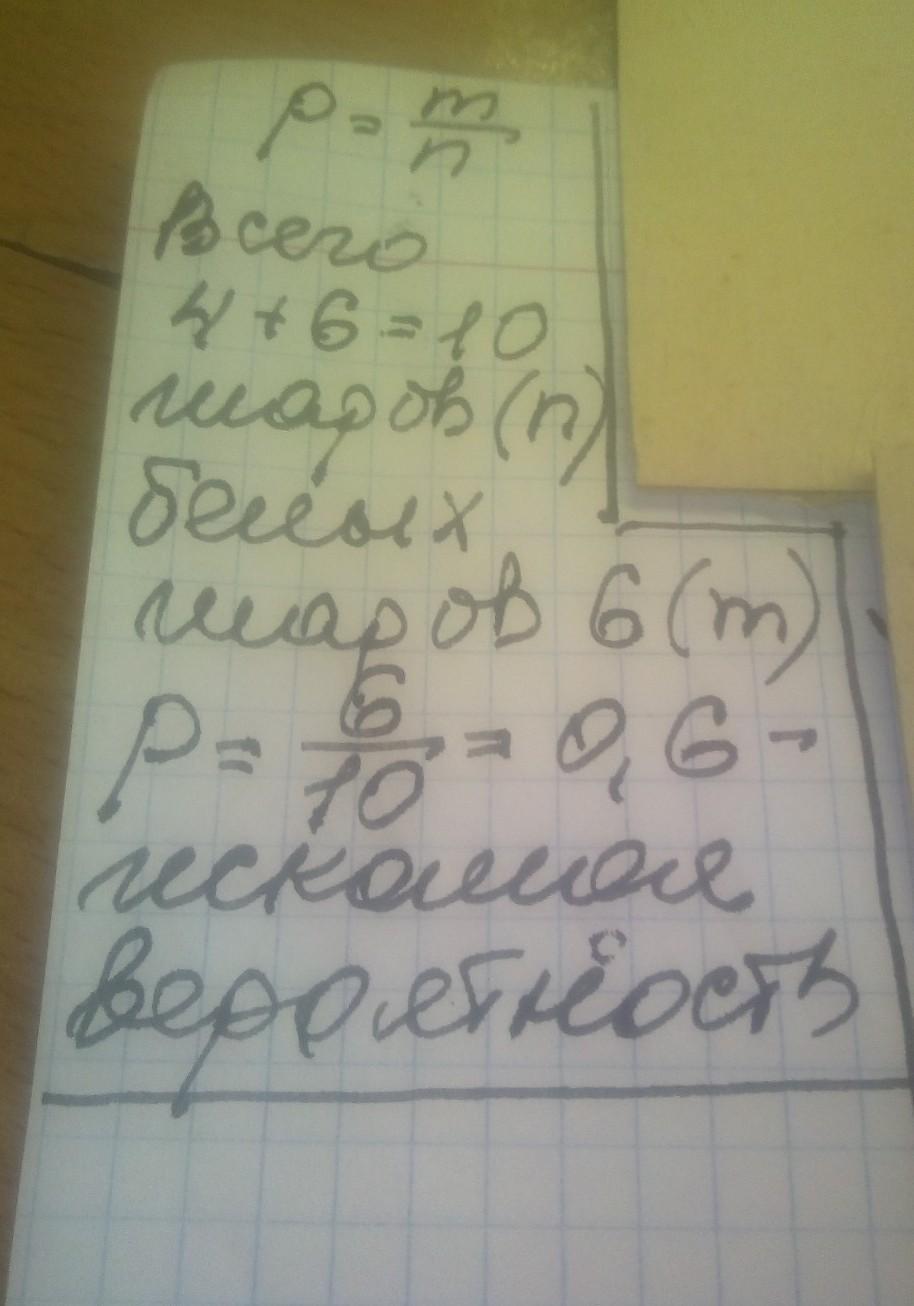 P = m/n
Всего
4 + 6 = 10
шаров (n)
белых
шаров 6 (m)
P = 6/10 = 0,6 -
искомая
вероятность